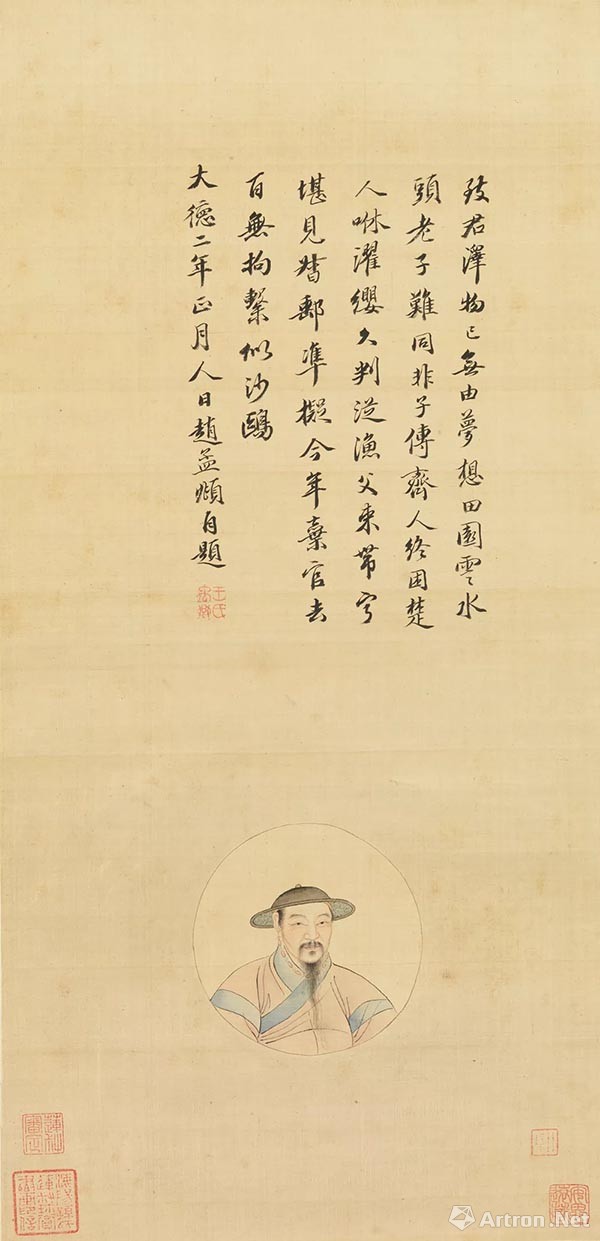 致君澤物已無由夢想田園雲水
頭老子難同非子傳齊人終困楚
人咻濯纓久判從漁父束帶寧
堪見督郵凖擬今年棄官去
百無拘繫似沙鷗
大德二年正月人日趙孟頫自題
Artron.Net